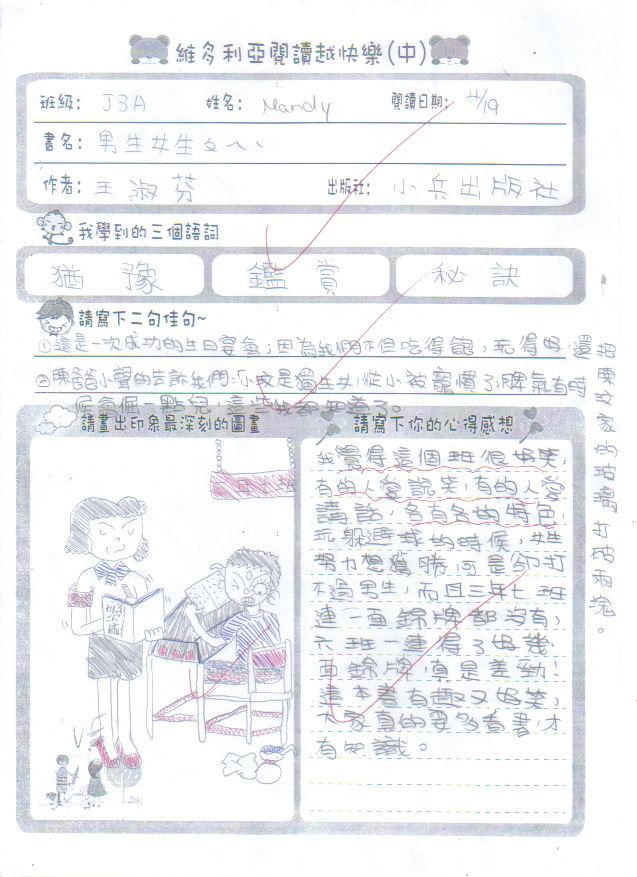 維多利亞閱讀越快樂(中)
班級： J3A 姓名： Mandy 閱讀日期： 4/19
書名： 男生女生ㄆㄟˋ
作者： 王淑芬 出版社： 小兵出版社
我學到的三個語詞
猶豫 鑑賞 秘訣
請寫下二句佳句~
①這是一次成功的生日宴會；因為我們不但吃得飽，玩得好，還
把陳玟家的玻璃打破兩塊。
②陳爸爸小聲的告訴我們：「小玟是獨生女，從小被寵慣了，脾氣有時
候會倔一點兒，這些我都知道了。
請畫出印象最深刻的圖畫
請寫下你的心得感想
我覺得這個班很好笑，
有的人愛說笑，有的人愛
講話，各有各的特色，
玩躲避球的時候，女生
努力想獲勝，可是卻打
不過男生，而且三年七班
連一面錦牌都沒有，
六班一連得了好幾
面錦牌，真是差勁！
這本書有趣又好笑，
大家真的要多看書，才
有知識。